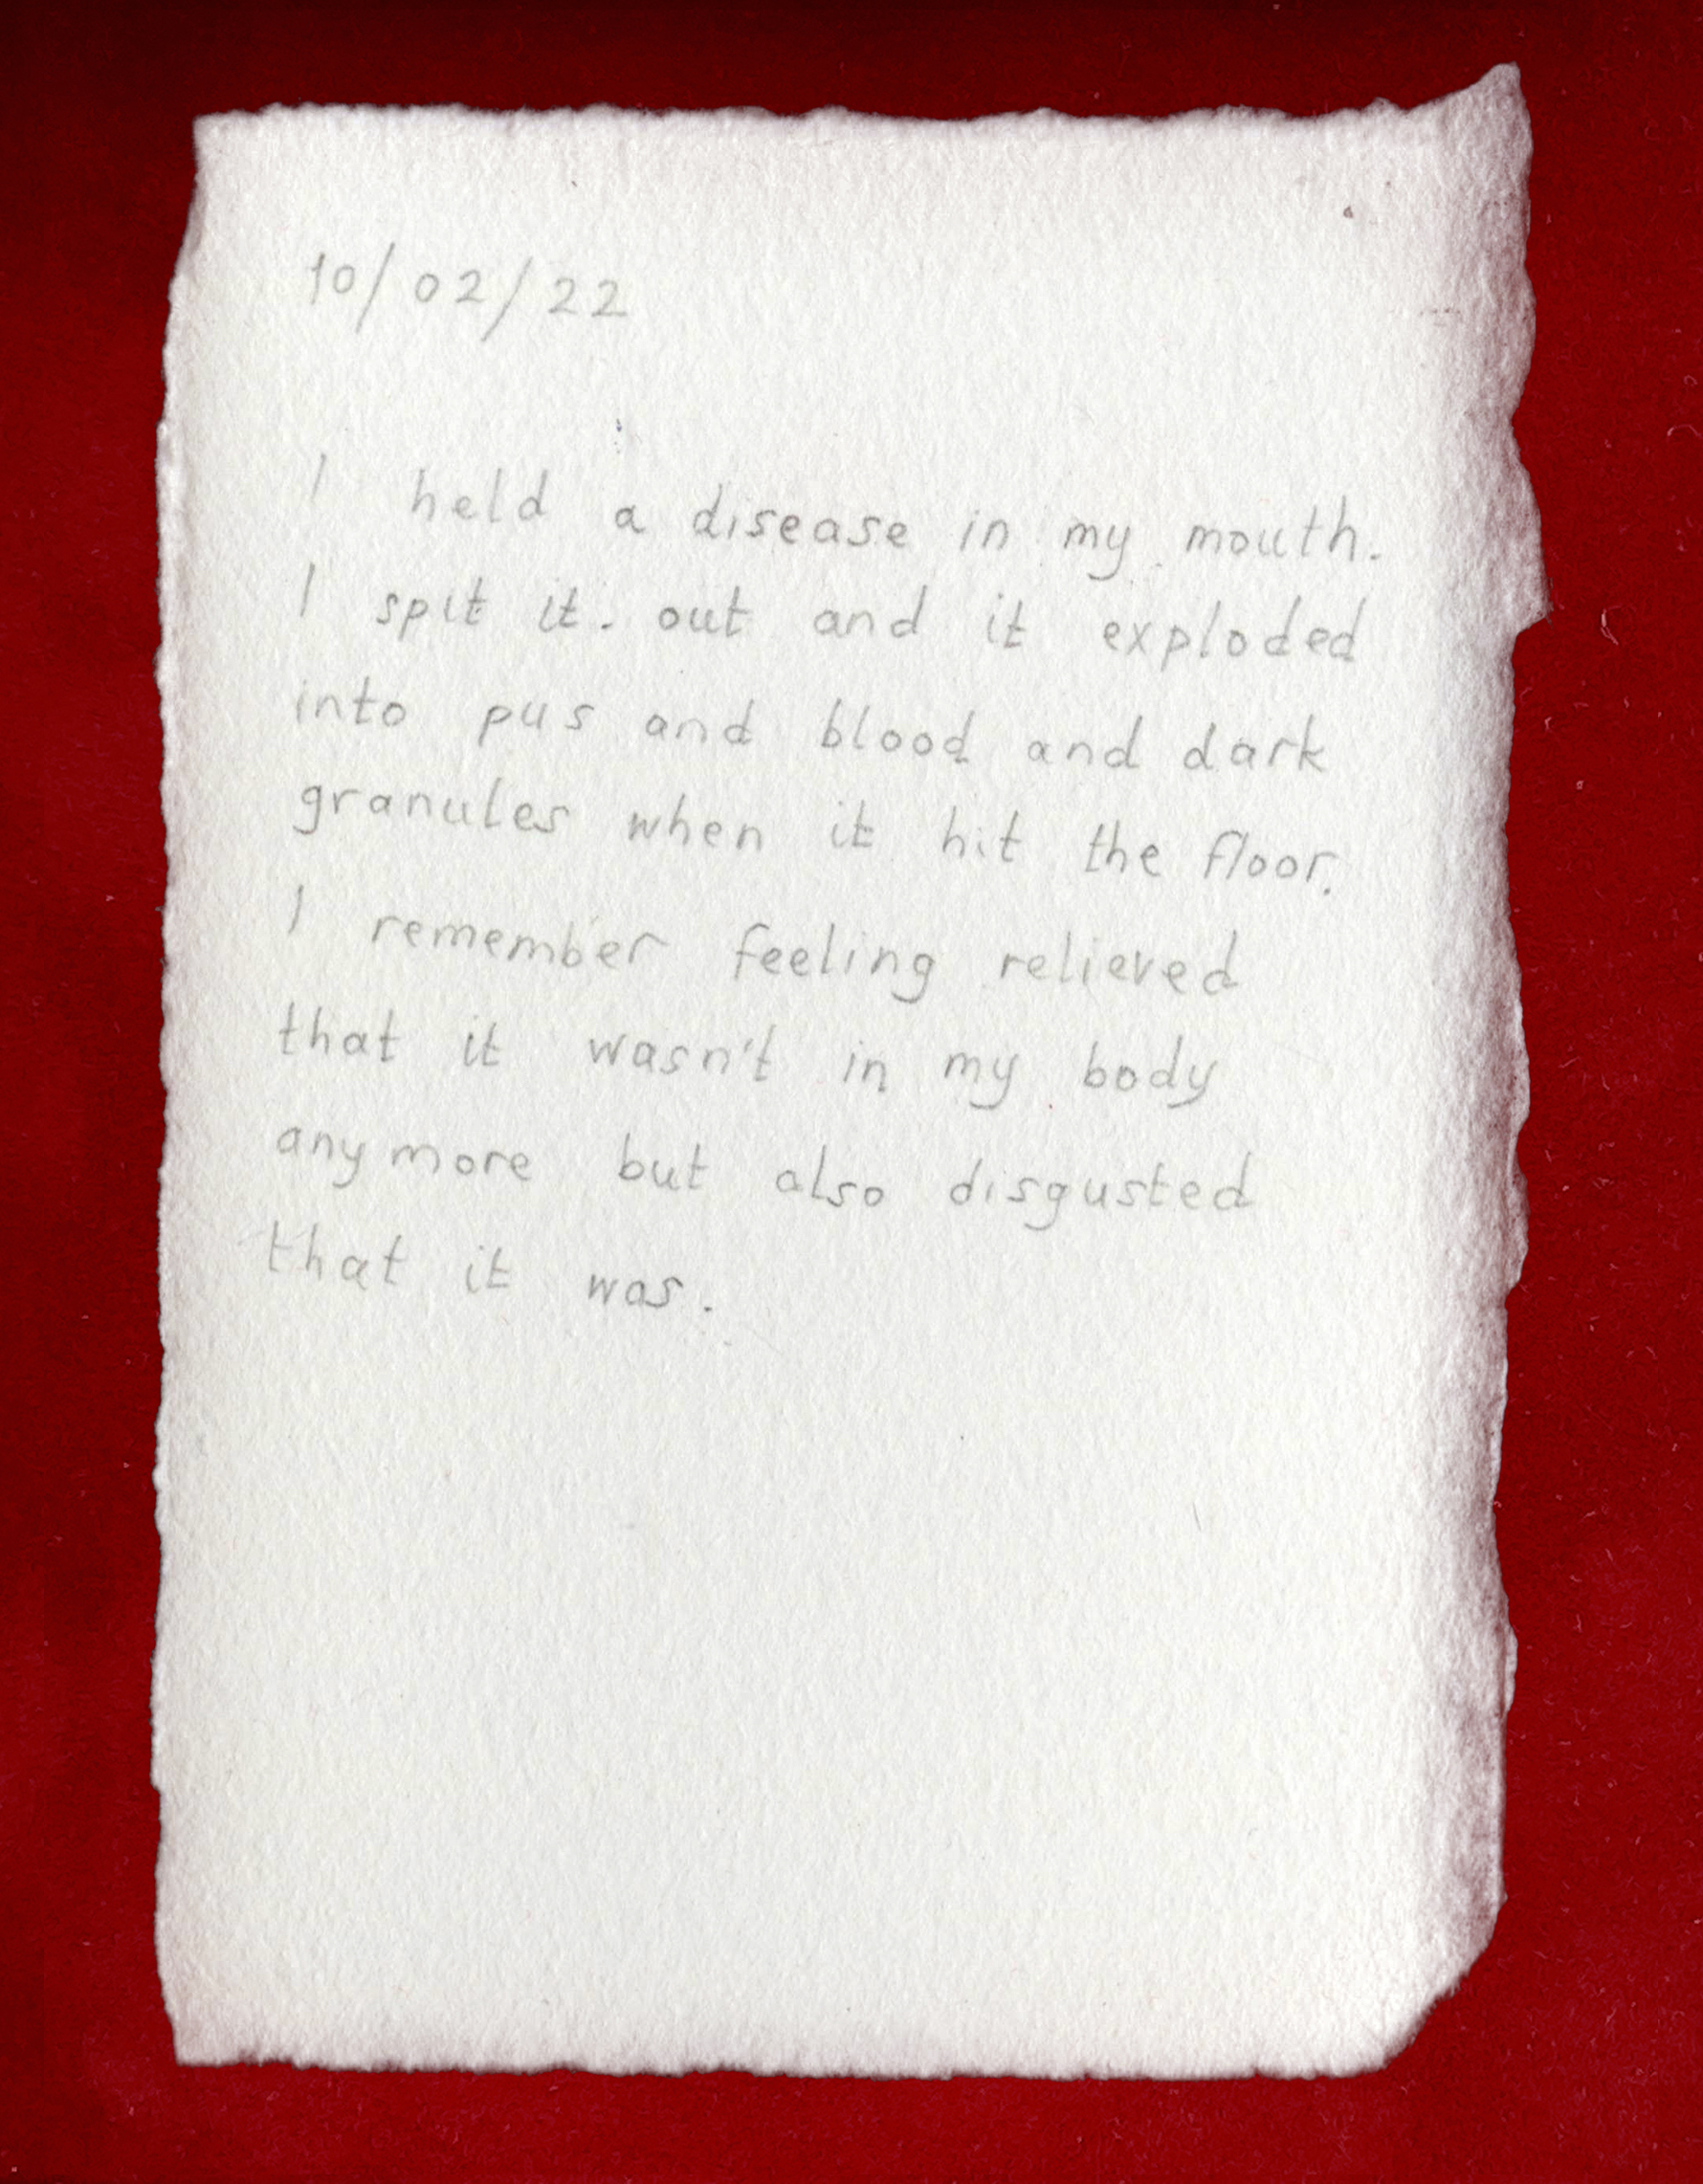 10/02/22
I held a disease in my mouth.
I spit it. out and it exploded
into pus and blood and dark
granules when it hit the floor.
I remember feeling relieved
that it wasn't in my body
anymore but also disgusted
that it was.